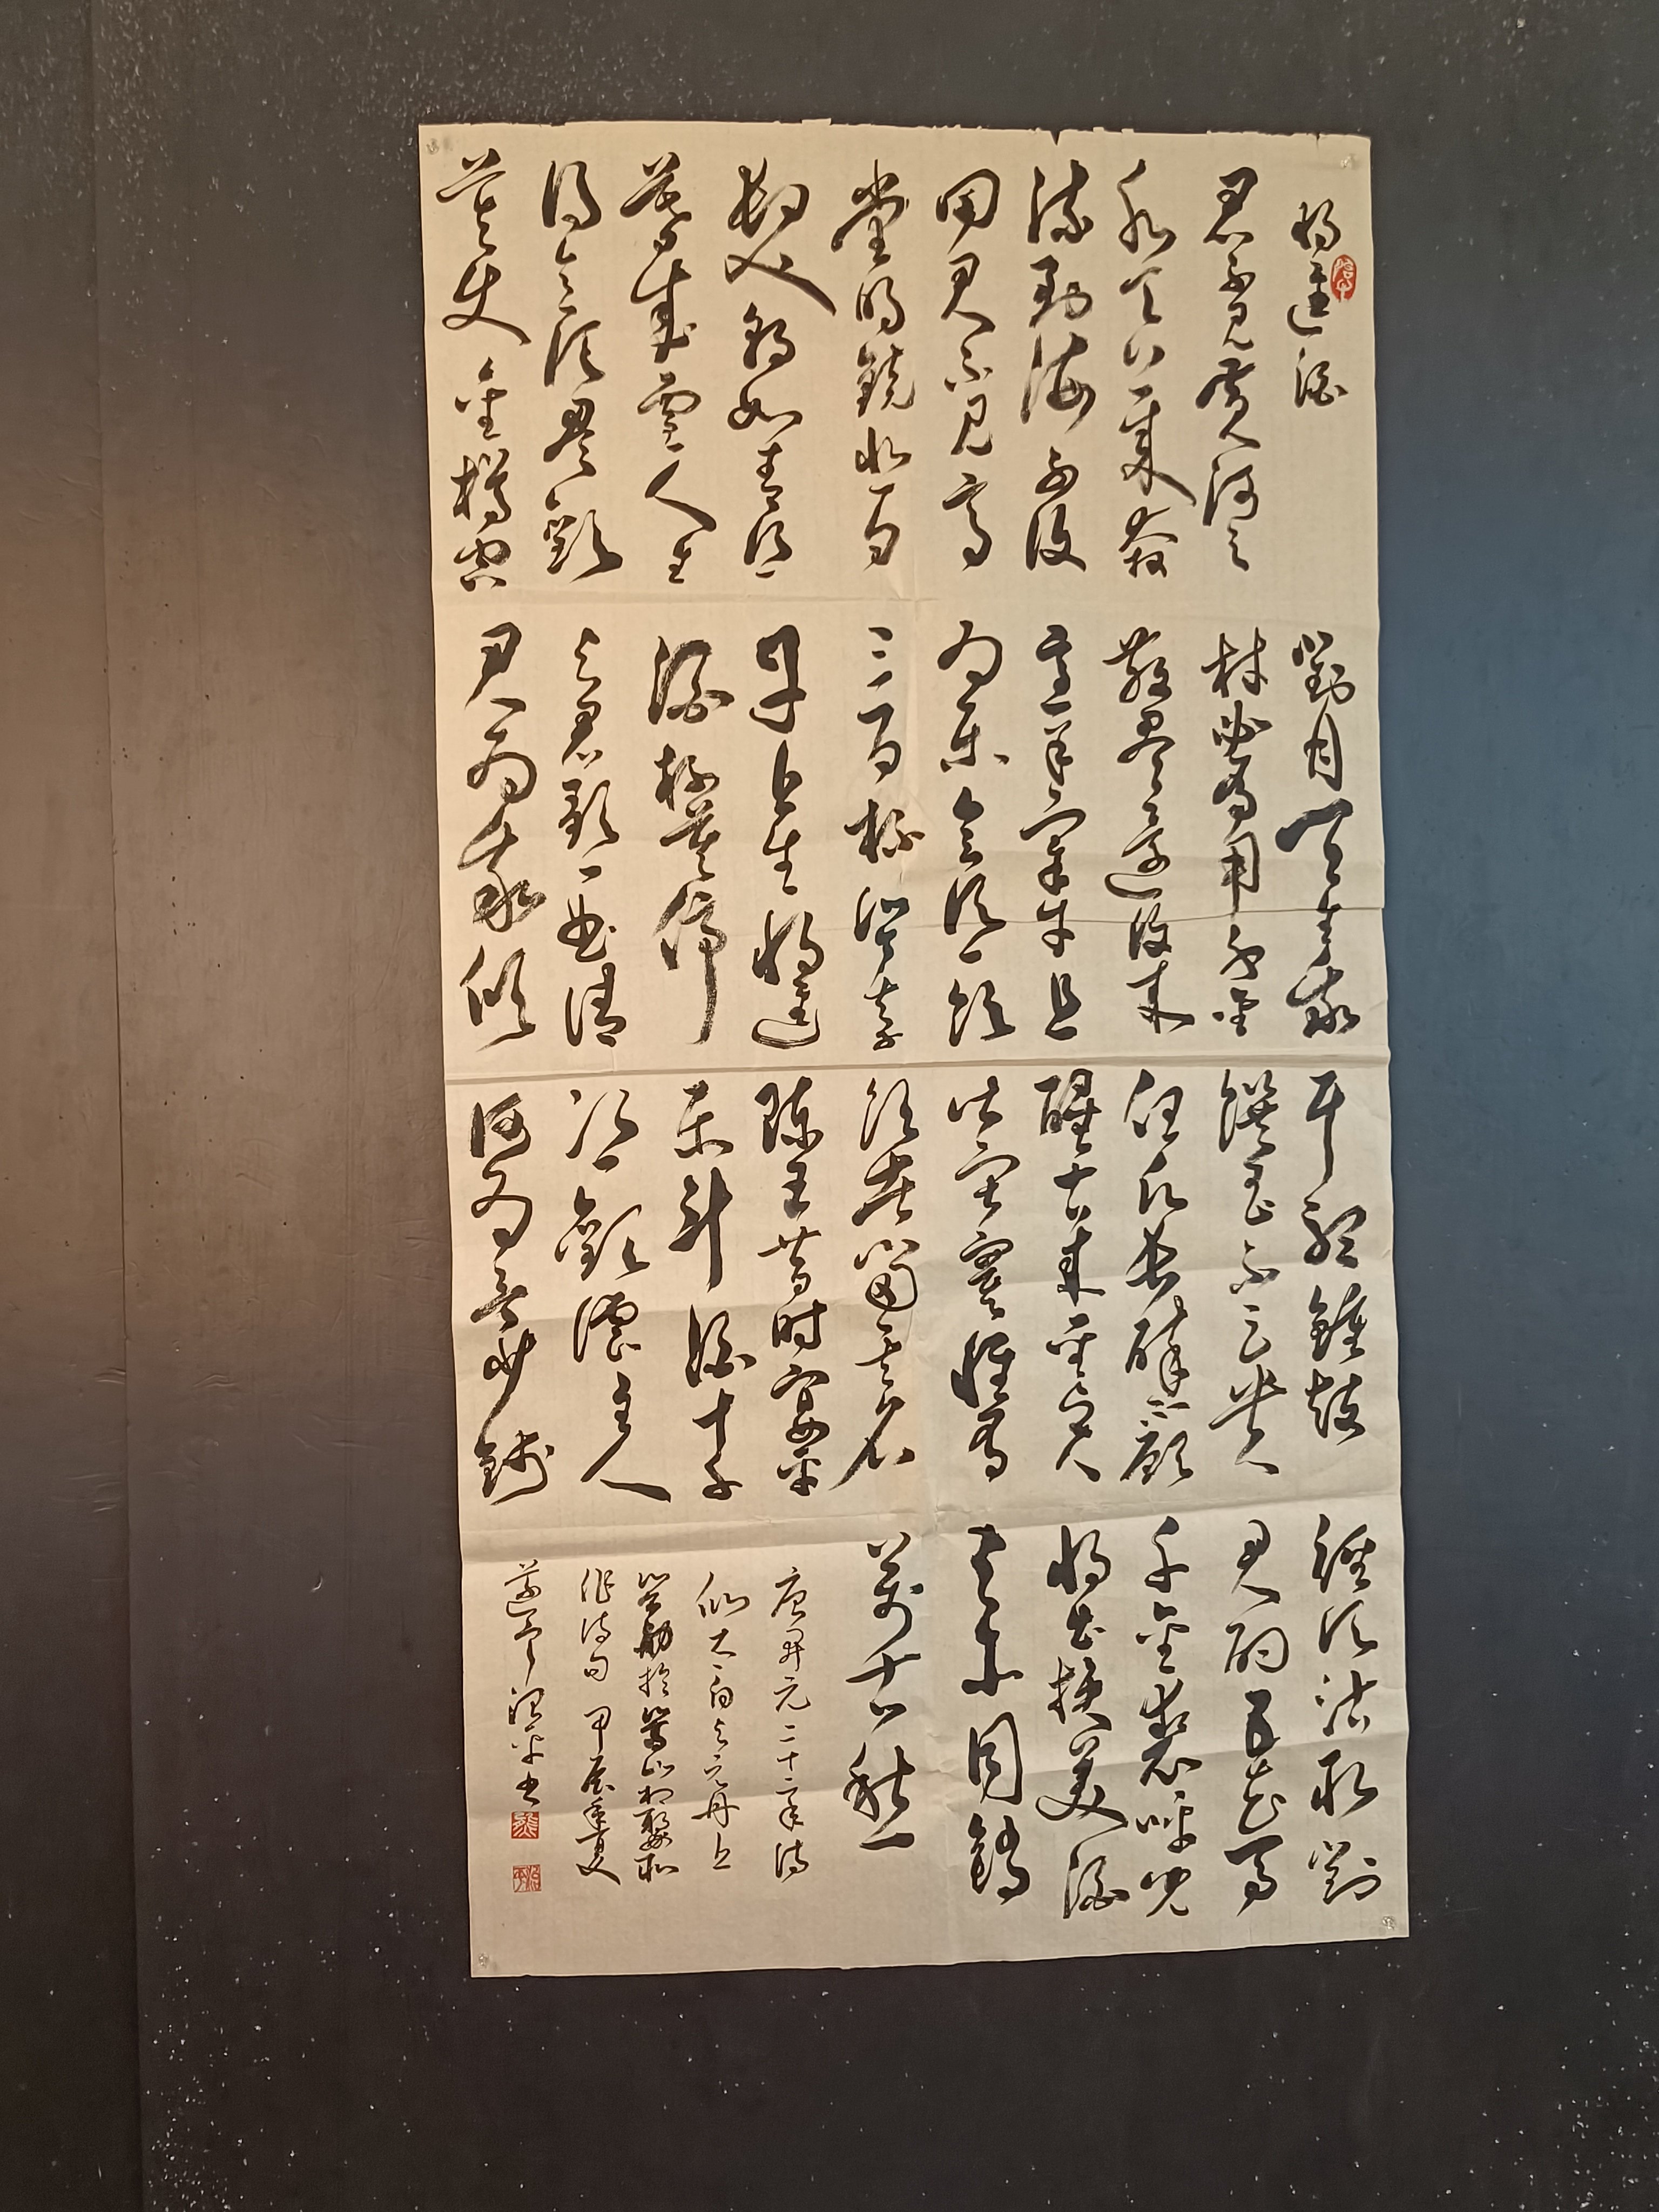 將進酒
君不見黃河之
水天上來奔
流到海不復
回君不見高
堂明鏡悲白
髮朝如青絲
暮成雪人生
得意須盡歡
莫使金樽空
對月天生我
材必有用千金
散盡還復來
烹羊宰牛且
為樂會須一飲
三百杯岑夫子
丹丘生將進
酒杯莫停
與君歌一曲請
君為我傾
耳聽鐘鼓
饌玉不足貴
但願長醉不願
醒古來聖賢
皆寂寞惟有
飲者留其名
陳王昔時宴平
樂斗酒十千
恣歡謔主人
何為言少錢
徑須沽取對
君酌五花馬
千金裘呼兒
將出換美酒
與爾同銷
萬古愁
唐開元二十二年詩
仙太白與元丹丘
岑勛於嵩山相聚
作詩句 甲辰年夏
遂寧